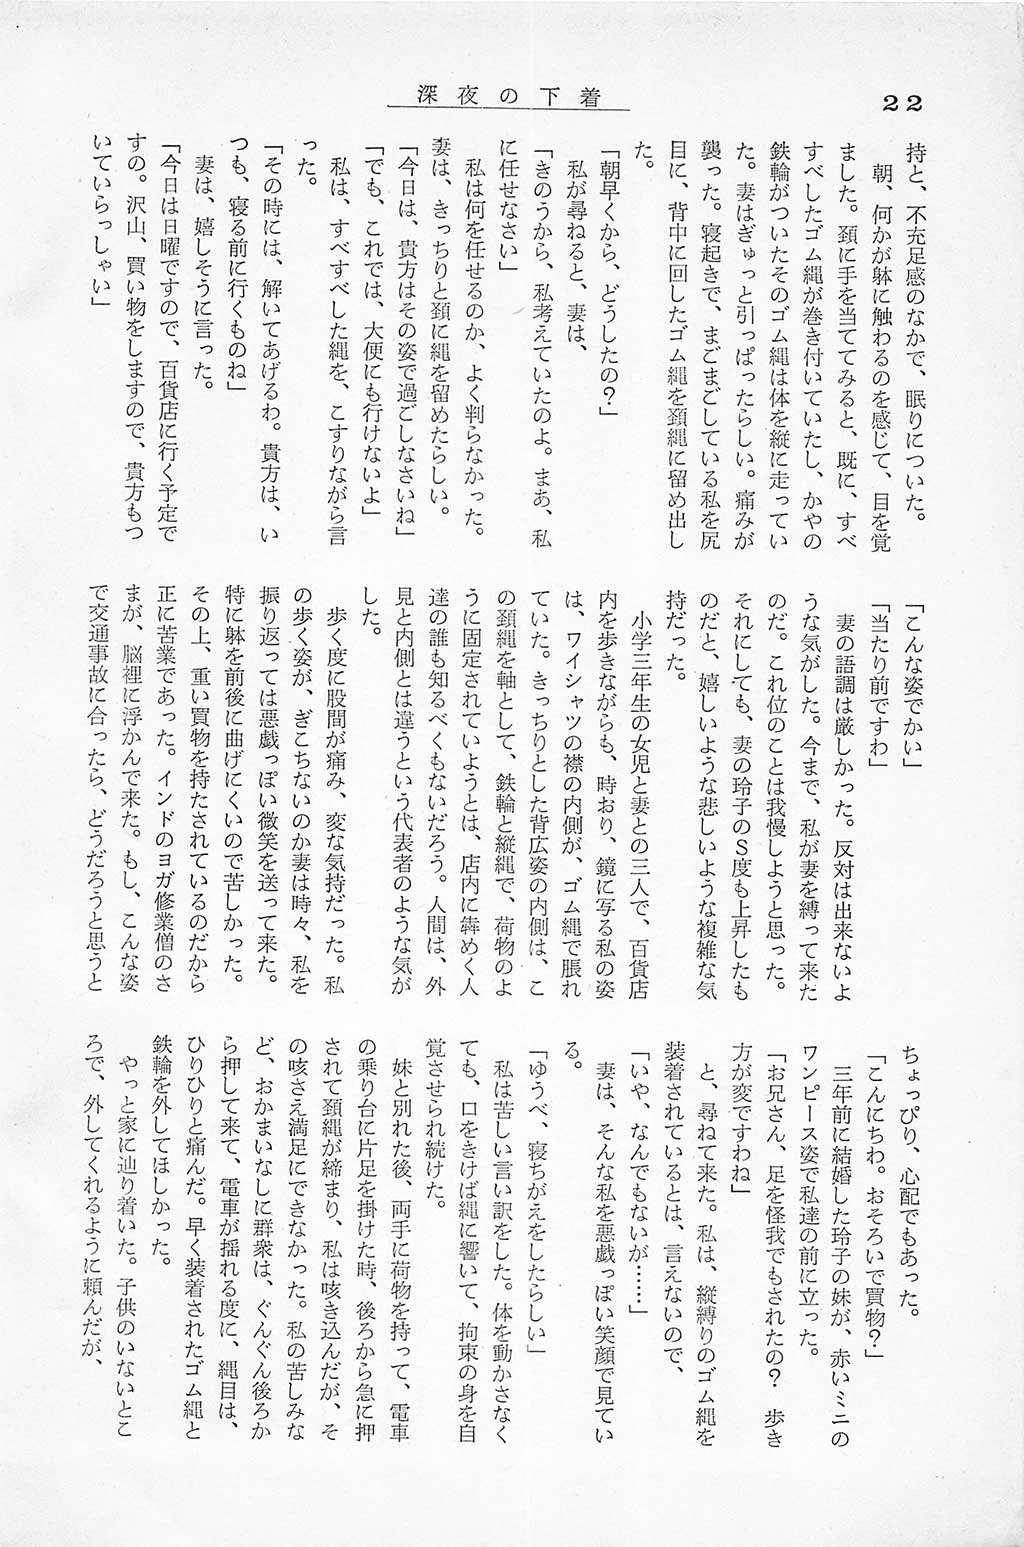 深夜の下着
22
持と、不充足感のなかで、眠りについた。
朝、何かが躰に触わるのを感じて、目を覚
ました。頚に手を当ててみると、既に、すべ
すべしたゴム縄が巻き付いていたし、かやの
鉄輪がついたそのゴム縄は体を縦に走ってい
た。妻はぎゅっと引っぱったらしい。痛みが
襲った。寝起きで、まごまごしている私を尻
目に、背中に回したゴム縄を頚縄に留め出し
た。
「朝早くから、どうしたの?」
私が尋ねると、妻は、
「きのうから、私考えていたのよ。まあ、私
に任せなさい」
私は何を任せるのか、よく判らなかった。
妻は、きっちりと頚に縄を留めたらしい。
「今日は、貴方はその姿で過ごしなさいね」
「でも、これでは、大便にも行けないよ」
私は、すべすべした縄を、こすりながら言
った。
「その時には、解いてあげるわ。貴方は、い
つも、寝る前に行くものね」
妻は、嬉しそうに言った。
「今日は日曜ですので、百貨店に行く予定で
すの。沢山、買い物をしますので、貴方もつ
いていらっしゃい」
「こんな姿でかい」
「当たり前ですわ」
妻の語調は厳しかった。反対は出来ないよ
うな気がした。今まで、私が妻を縛って来た
のだ。これ位のことは我慢しようと思った。
それにしても、妻の玲子のS度も上昇したも
のだと、嬉しいような悲しいような複雑な気
持だった。
小学三年生の女児と妻との三人で、百貨店
内を歩きながらも、時おり、鏡に写る私の姿
は、ワイシャツの襟の内側が、ゴム縄で脹れ
ていた。きっちりとした背広姿の内側は、こ
の頚縄を軸として、鉄輪と縦縄で、荷物のよ
うに固定されていようとは、店内に犇めく人
達の誰も知るべくもないだろう。人間は、外
見と内側とは違うという代表者のような気が
した。
歩く度に股間が痛み、変な気持だった。私
の歩く姿が、ぎこちないのか妻は時々、私を
振り返っては悪戯っぽい微笑を送って来た。
特に躰を前後に曲げにくいので苦しかった。
その上、重い買物を持たされているのだから
正に苦業であった。インドのヨガ修業僧のさ
まが、脳裡に浮かんで来た。もし、こんな姿
で交通事故に合ったら、どうだろうと思うと
ちょっぴり、心配でもあった。
「こんにちわ。おそろいで買物?」
三年前に結婚した玲子の妹が、赤いミニの
ワンピース姿で私達の前に立った。
「お兄さん、足を怪我でもされたの? 歩き
方が変ですわね」
と、尋ねて来た。私は、縦縛りのゴム縄を
装着されているとは、言えないので、
「いや、なんでもないが……」
妻は、そんな私を悪戯っぽい笑顔で見てい
る。
「ゆうべ、寝ちがえをしたらしい」
私は苦しい言い訳をした。体を動かさなく
ても、口をきけば縄に響いて、拘束の身を自
覚させられ続けた。
妹と別れた後、両手に荷物を持って、電車
の乗り台に片足を掛けた時、後ろから急に押
されて頚縄が締まり、私は咳き込んだが、そ
の咳さえ満足にできなかった。私の苦しみな
ど、おかまいなしに群衆は、ぐんぐん後ろか
ら押して来て、電車が揺れる度に、縄目は、
ひりひりと痛んだ。早く装着されたゴム縄と
鉄輪を外してほしかった。
やっと家に辿り着いた。子供のいないとこ
ろで、外してくれるように頼んだが、